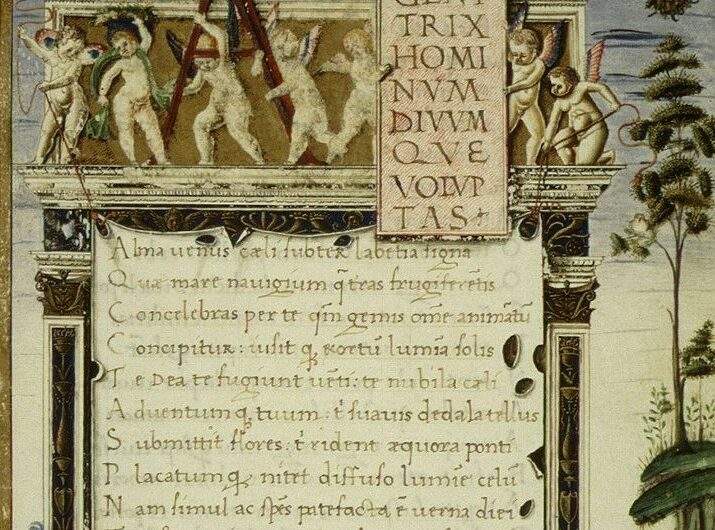 GENI
TRIX
HOMI
NVM
DIVVM
QVE
VOLVP
TAS
Alma uenus cæli subter labētia signa
Quæ mare nauigium q̄ tras frugiferētis
Concelebras per te qm̄ genus om̄e animātū
Concipitur: uisit q; exortū lumīa solis
Te Dea te fugiunt uēti: te nubila cæli
Aduentumq; tuum: t̄ suauis dedala tellus
Submittit flores: t̄ rident æquora ponti
Placatumq; nitet diffuso lumīe celū
Nam simul ac spēs patefacta ē uerna diei